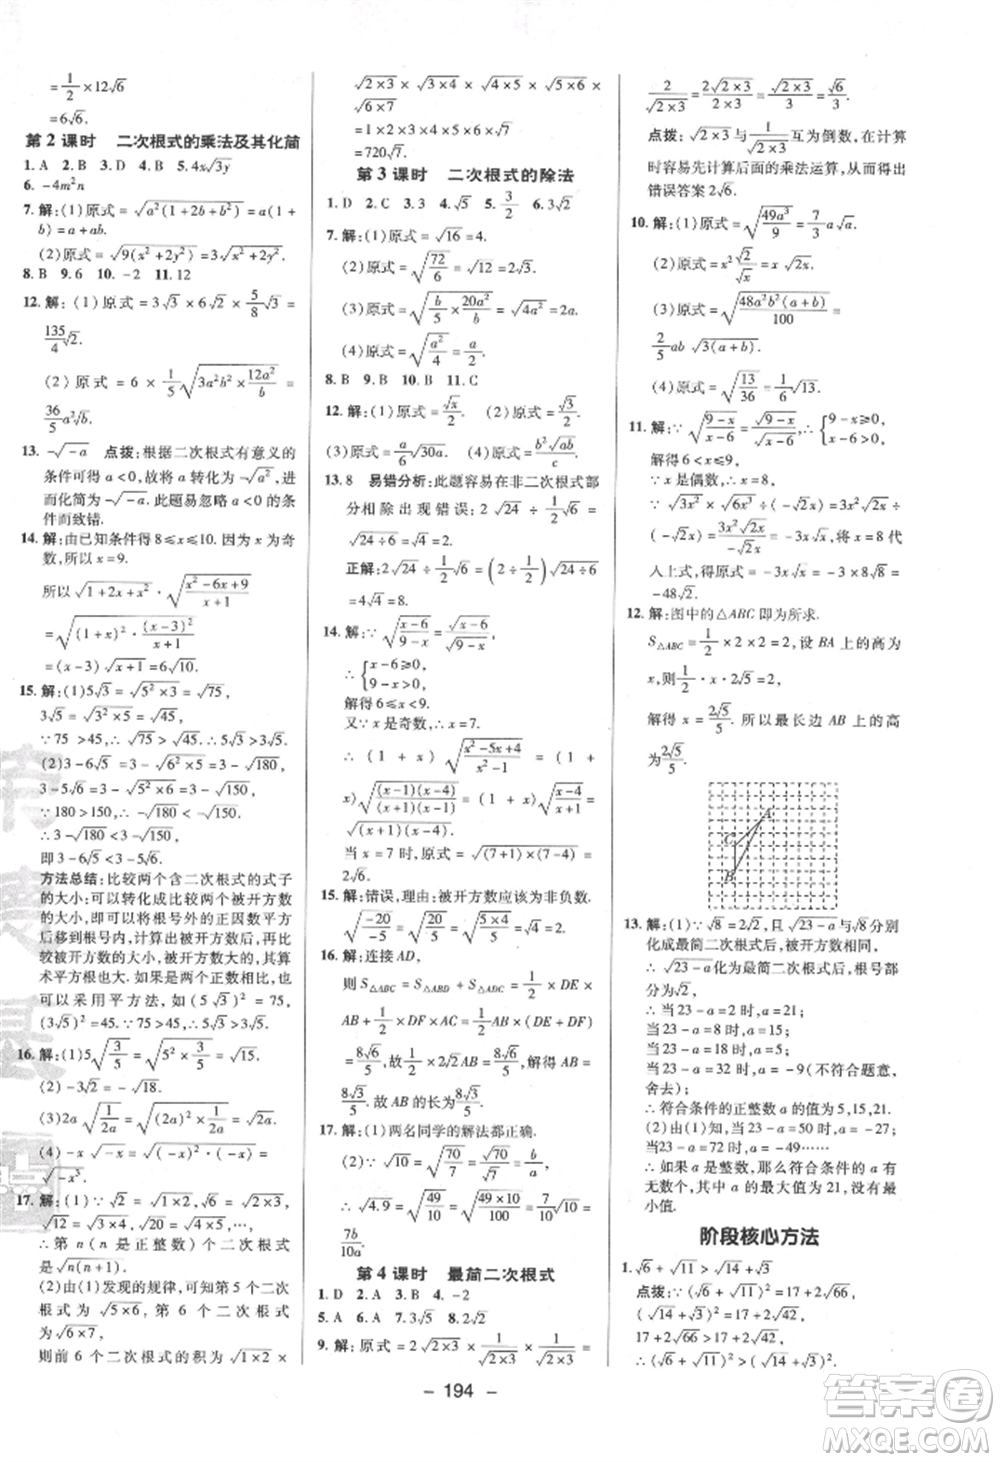 = 1/2 ×12√6
=6√6.
第 2 课时　二次根式的乘法及其化简
1. A　2. B　3. D　4. B　5. 4x√3y
6. －4m²n
7. 解:(1)原式＝√a²(1＋2b＋b²)＝a(1＋
b)＝a＋ab.
(2)原式＝√9(x²＋2y²)＝3√x²＋2y².
8. B　9. 6　10. －2　11. 12
12. 解:(1)原式＝3√3×6√2×5/8√3＝
135/4√2.
(2)原式＝6×1/5√3a²b²×12a²/b＝
36/5a²√b.
13. －√－a　点拨:根据二次根式有意义的
条件可得a<0,故将a转化为－√a²,进
而化简为－√－a.此题易忽略a<0的条
件而致错.
14. 解:由已知条件得8≤x≤10.因为x为奇
数,所以x＝9.
所以√1＋2x＋x²·√x²－6x＋9/x＋1
＝√(1＋x)²·(x－3)²/x＋1
＝(x－3)√x＋1＝6√10.
15. 解:(1)5√3＝√5²×3＝√75,
3√5＝√3²×5＝√45,
∵75>45,∴√75>√45,即5√3>3√5.
(2)3－6√5＝3－√6²×5＝3－√180,
3－5√6＝3－√5²×6＝3－√150,
∵180>150,∴－√180<－√150.
∴3－√180<3－√150,
即3－6√5<3－5√6.
方法总结:比较两个含二次根式的式子
的大小:可以转化成比较两个被开方数
的大小,即将根号外的正因数平方
后移到根号内,计算出被开方数后,再比
较被开方数的大小,被开方数大的,其算
术平方根也大.如果是两个正数比较,也
可以采用平方法,如(5√3)²＝75,
(3√5)²＝45,75>45,∴5√3>3√5.
16. 解:(1)5√3/5＝√5²×3/5＝√15.
(2)－3√2＝－√18.
(3)2a√1/2a＝√(2a)²·1/2a＝√2a.
(4)－x√－x＝√(－x)²·(－x)＝
√－x³.
17. 解:(1)∵√2＝√1×2,√6＝√2×3,
√12＝√3×4,√20＝√4×5,…,
∴第n(n是正整数)个二次根式是
√n(n＋1).
(2)由(1)发现的规律,可知第5个二次
根式为√5×6,第6个二次根式为
√6×7,
则前6个二次根式的积为√1×2×
√2×3×√3×4×√4×5×√5×6×
√6×7
＝1×2×3×4×5×6×√7
＝720√7.
第 3 课时　二次根式的除法
1. D　2. C　3. 3　4. √5　5. 3/2　6. 3√2
7. 解:(1)原式＝√16＝4.
(2)原式＝√72/6＝√12＝2√3.
(3)原式＝√b/5×20a²/b＝√4a²＝2a.
(4)原式＝√a²/4＝a/2.
8. B　9. B　10. B　11. C
12. 解:(1)原式＝√x/2.　(2)原式＝√3/2.
(3)原式＝a/6√30a.　(4)原式＝b²√ab/c.
13. 8　易错分析:此题容易在非二次根式部
分相除出现错误:2√24÷1/2√6＝
√24÷√6＝√4＝2.
正解:2√24÷1/2√6＝(2÷1/2)√24÷6＝
4√4＝8.
14. 解:∵√x－6/9－x＝√x－6/√9－x,
∴{x－6≥0, 9－x>0,
解得6≤x<9.
又∵x是奇数,∴x＝7.
∴(1＋x)√x²－5x＋4/x²－1＝(1＋
x)√(x－1)(x－4)/(x＋1)(x－1)＝(1＋x)√x－4/x＋1＝
√(x＋1)(x－4).
当x＝7时,原式＝√(7＋1)×(7－4)＝
2√6.
15. 解:错误,理由:被开方数应该为非负数.
√－20/－5＝√20/5＝√4×5/5＝√4＝2.
16. 解:连接AD,
则S△ABC＝S△ABD＋S△ADC＝1/2×DE×
AB＋1/2×DF×AC＝1/2×(DE＋DF)×AB
＝8√6/5,故1/2AB×2√2＝8√6/5,∴AB＝
8√3/5,故AB的长为8√3/5.
17. 解:(1)两名同学的解法都正确.
(2)∵√4.9＝√49/10＝√490/100＝7√10/10＝b/a,
∴√4.9＝√49/10＝√49×10/10×10＝7√10/10＝
7b/10a.
第 4 课时　最简二次根式
1. D　2. A　3. B　4. －2
5. A　6. A　7. 3√5　8. 2√2
9. 解:原式＝2√2×3×1/√2×3×1/√2×3＝
2/√2×3＝2√2×3/2×3＝√6/3.
点拨:√2×3与1/√2×3互为倒数,计算
时容易先计算后面的乘法运算,从而得出
错误答案2√6.
10. 解:(1)原式＝√49a³/9＝7/3a√a.
(2)原式＝x²√2/√x＝x√2x.
(3)原式＝√48a²b²(a＋b)/100＝
2/5ab√3(a＋b).
(4)原式＝√13/36＝√13/6.
11. 解:∵√9－x/x－6＝√9－x/√x－6,∴{9－x≥0, x－6>0,
解得6<x≤9.
∵x是偶数,∴x＝8.
∵√3x²×√6x³÷(－√2x)＝3x²√2x÷
(－√2x)＝－3x√x,∴将x＝8代
入上式,得原式＝－3×8√8＝
－48√2.
12. 解:图中的△ABC即为所求.
S△ABC＝1/2×2×2＝2,设BA上的高为
x,则1/2x·2√5＝2,
解得x＝2√5/5.所以最长边AB上的高
为2√5/5.
A
C
B
13. 解:(1)∵√8＝2√2,且√23－a与√8分别
化成最简二次根式后,被开方数相同,
∴√23－a化为最简二次根式后,根号部
分为√2.
∴当23－a＝2时,a＝21;
当23－a＝8时,a＝15;
当23－a＝18时,a＝5;
当23－a＝32时,a＝－9(不符合题意,
舍去);
∴符合条件的正整数a为5,15,21.
(2)由(1)可知,当23－a＝50时,a＝－27;
当23－a＝72时,a＝－49……
∴如果a是实数,那么符合条件的a有
无数个,其中a的最大值为21,没有最
小值.
阶段核心方法
1. √6＋√11>√14＋√3
点拨:∵(√6＋√11)²＝17＋2√66,
(√14＋√3)²＝17＋2√42,
17＋2√66>17＋2√42,
∴(√6＋√11)²>(√14＋√3)².
－ 194 －
答案圈
MXQE.COM